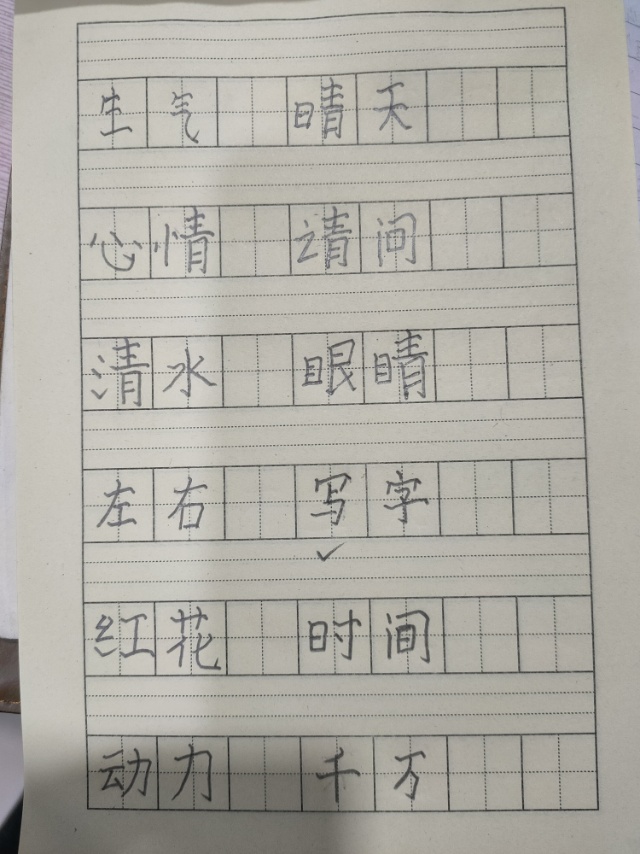 生气 晴天
心情 请问
清水 眼睛
左右 写字
红花 时间
动力 千万